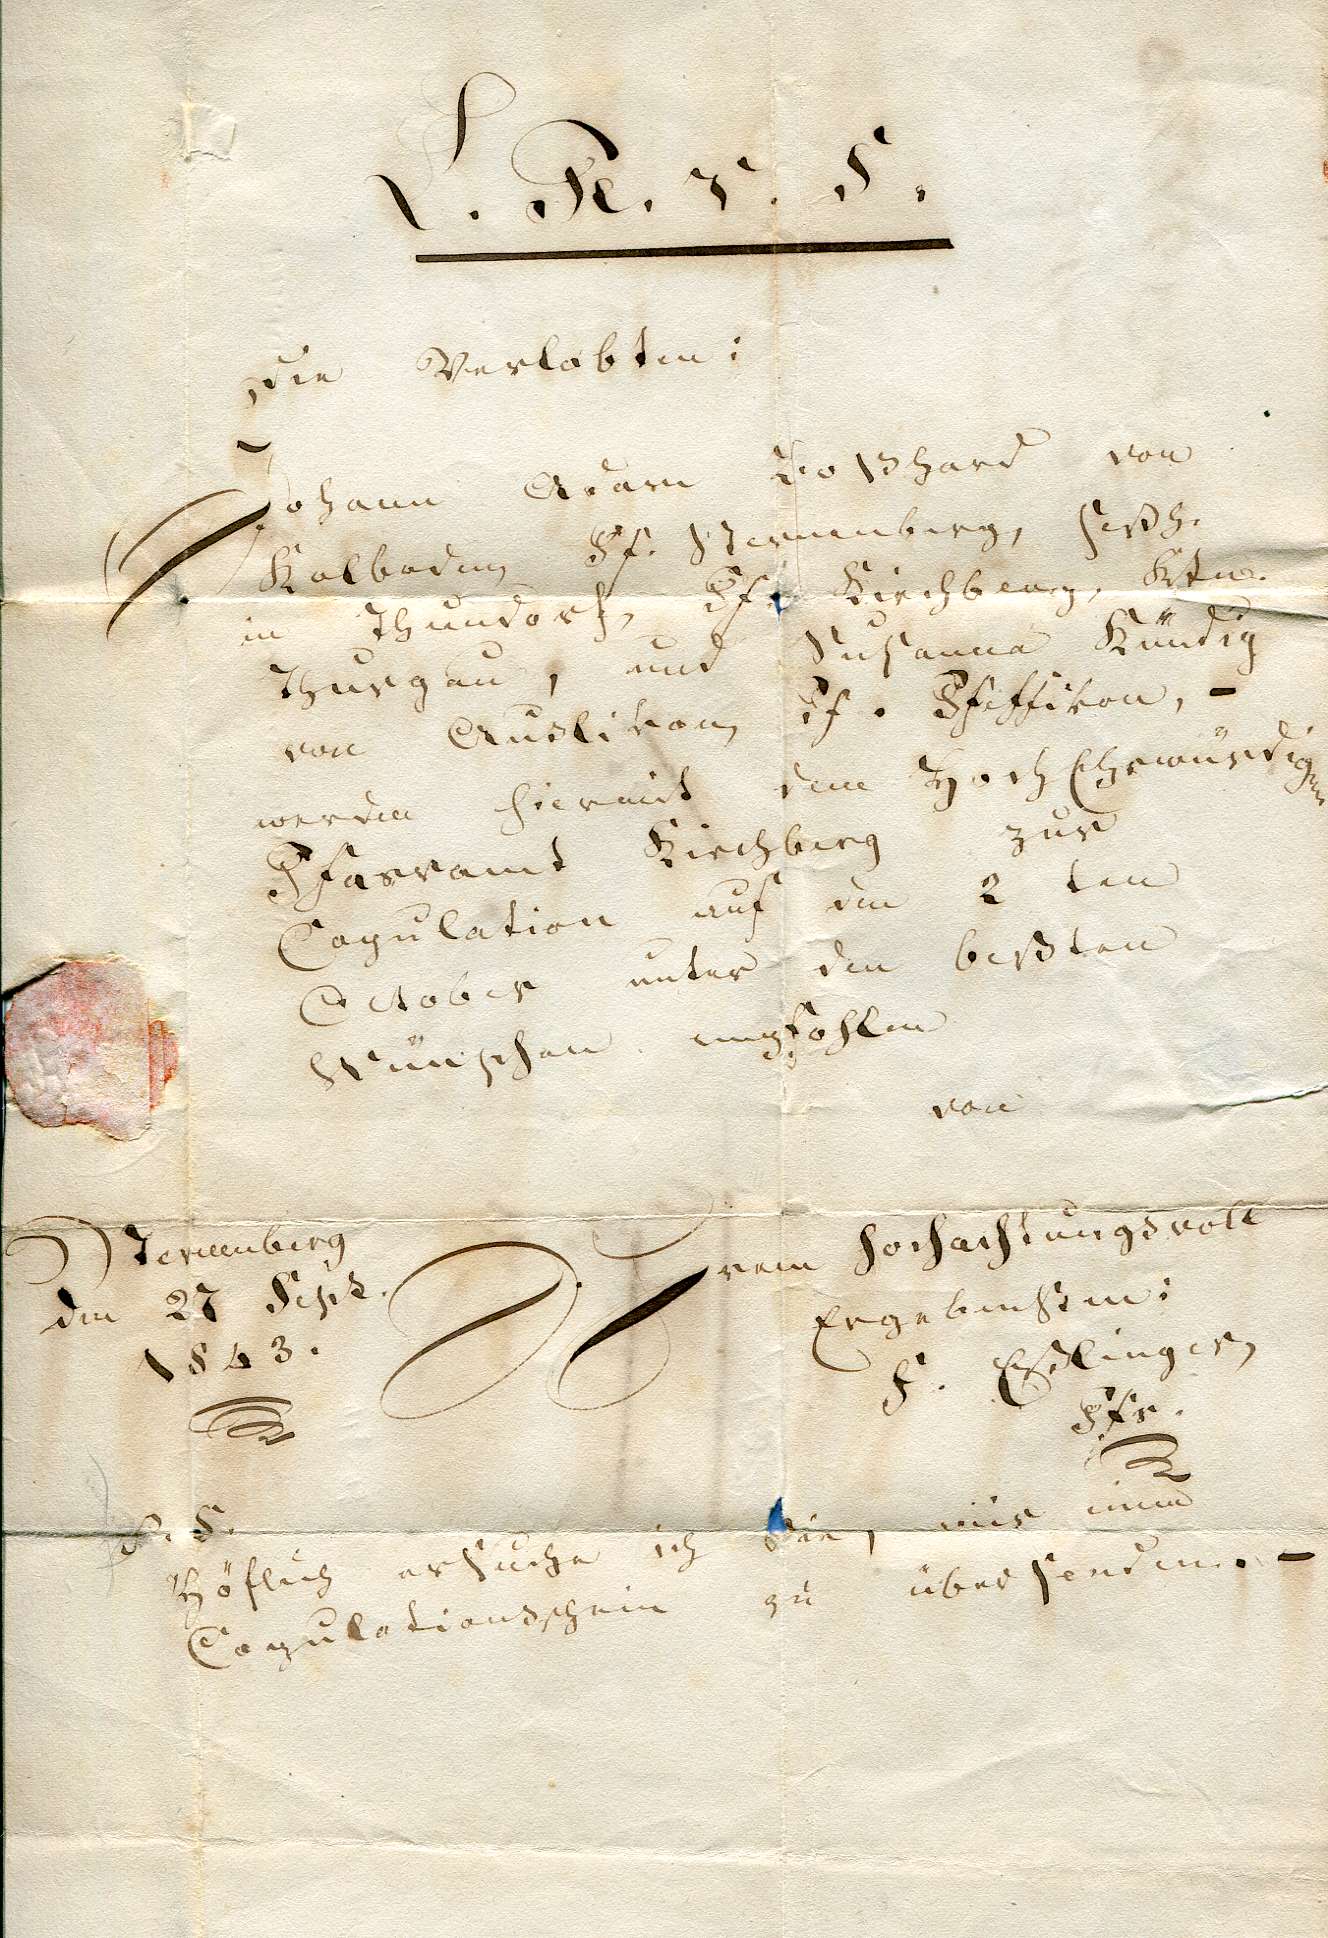 Die Verlobten:
Johann Adam Boßhard von
Kalboden, Pf. Sternenberg, seßh.
in Thundorf, Pf. Kirchberg, Ktns.
Thurgau, und Susanna Kündig
von Auslikon, Pf. Pfeffikon, –
werden hiermit dem HochEhrwürdigen
Pfarramt Kirchberg zur
Copulation auf den 2 ten
October unter den beßten
Wünschen empfohlen
von
Sternenberg
den 27 Sept.
1843.
Ihrem hochachtungsvoll
Ergebensten:
Eßlinger,
Pfr.
P. S.
Höflich ersuche ich Sie, mir einen
Copulationsschein zu übersenden. –